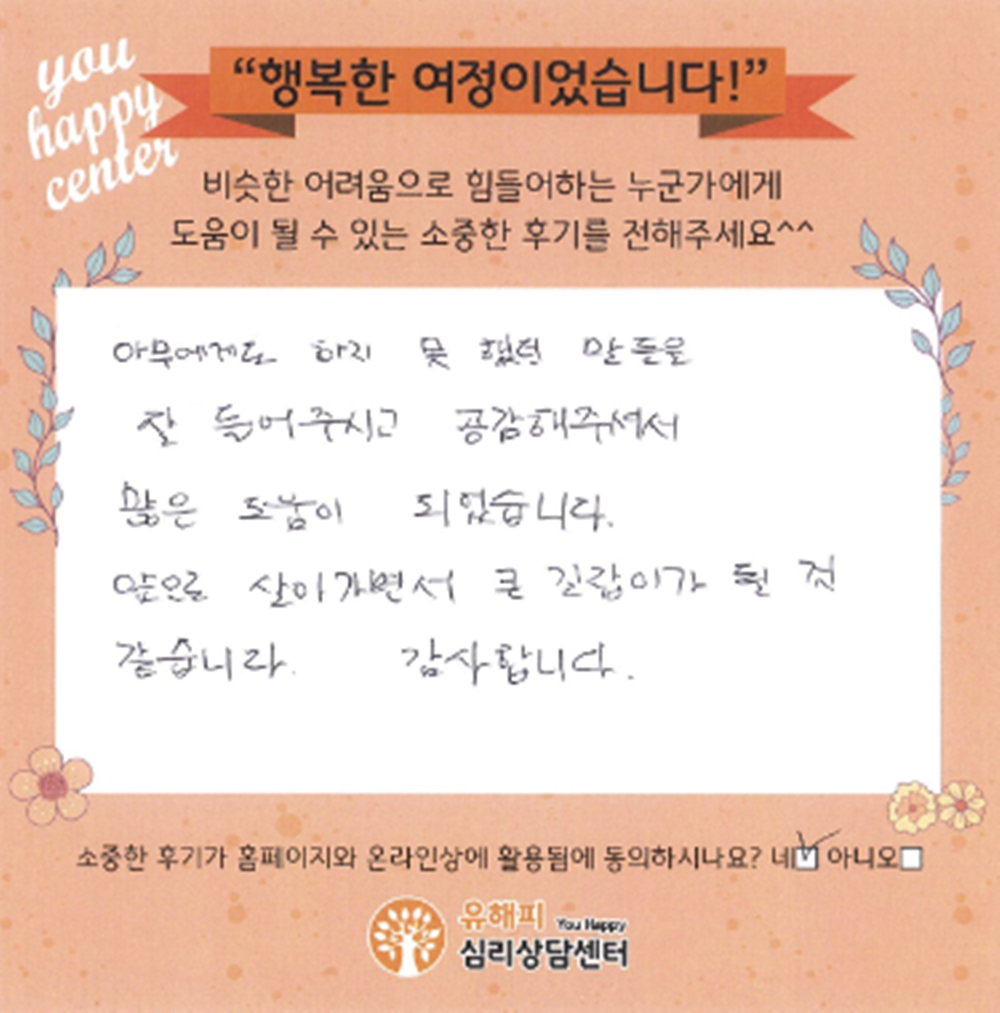 you
happy
center
“행복한 여정이었습니다!”
비슷한 어려움으로 힘들어하는 누군가에게
도움이 될 수 있는 소중한 후기를 전해주세요^^
아무에게도 하지 못 했던 말들을
잘 들어주시고 공감해주셔서
많은 도움이 되었습니다.
앞으로 살아가면서 큰 길잡이가 될 것
같습니다. 감사합니다.
소중한 후기가 홈페이지와 온라인상에 활용됨에 동의하시나요? 네 아니오
유해피 You Happy
심리상담센터